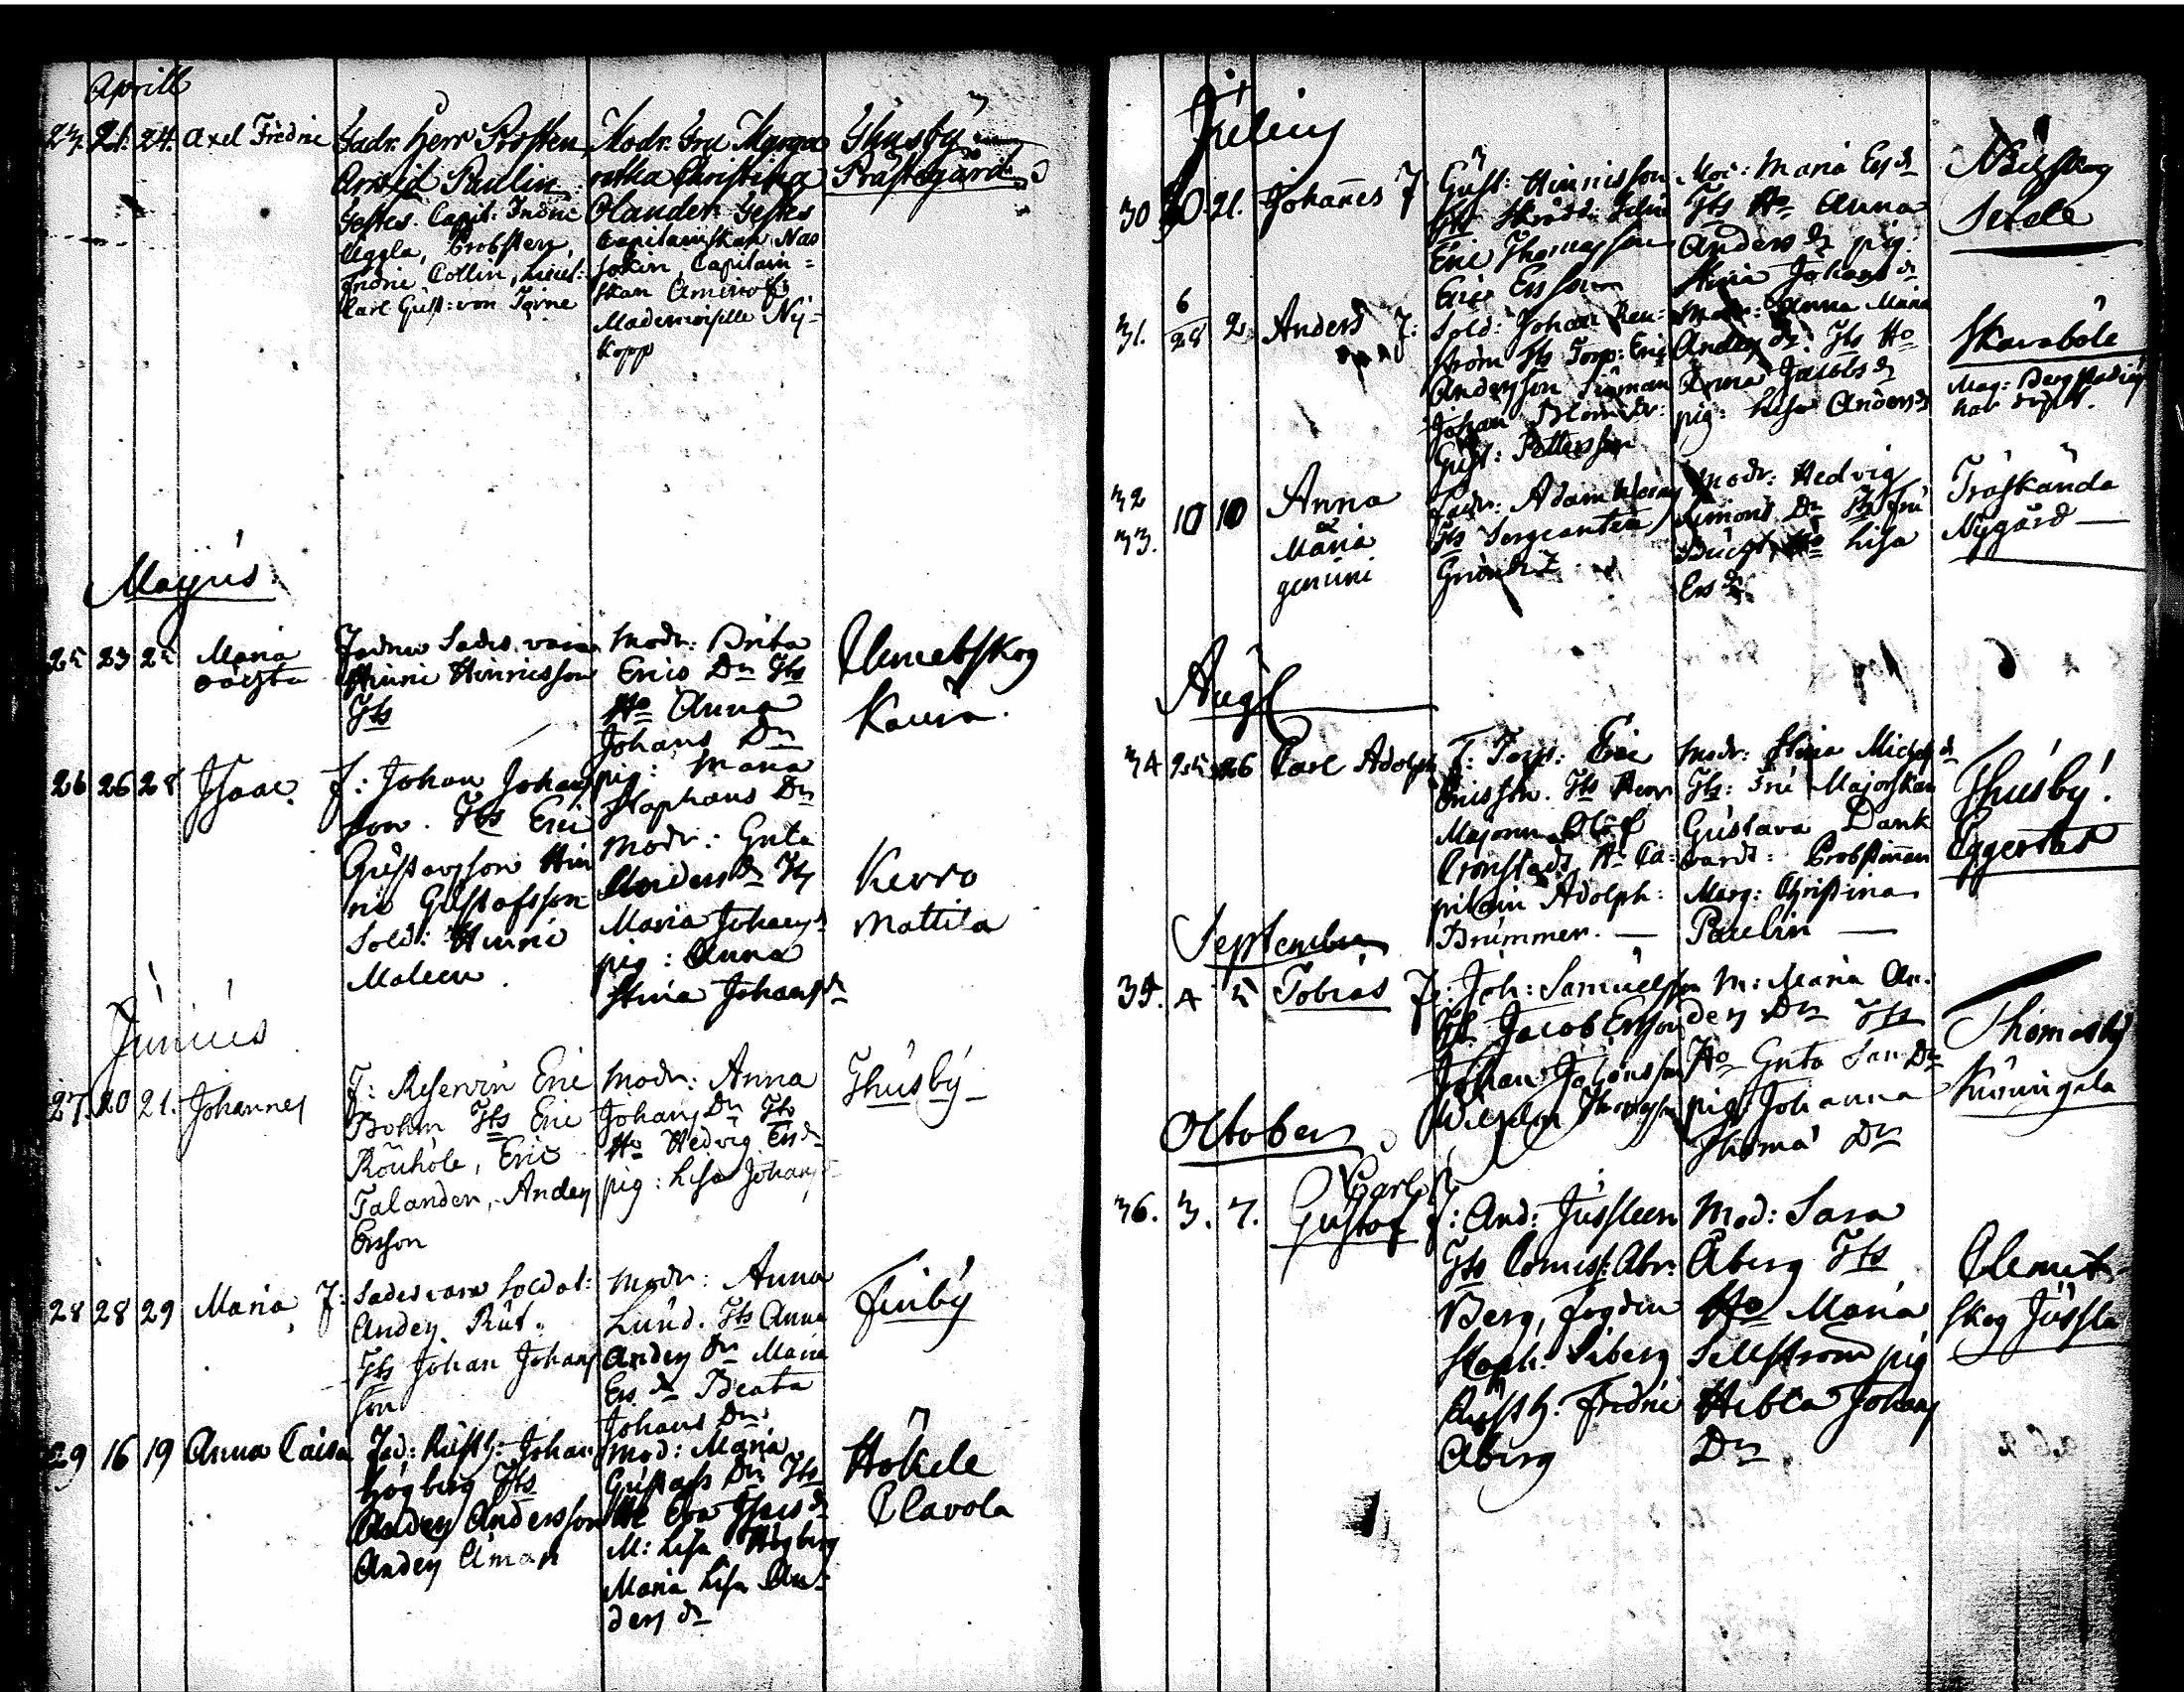 Aprill
23. 21. 24. Axel Fredric
Fadr. Herr Prosten
Arvid Paulin
Testes. Capit: Fredric
Uggla, Probsten
Fredric Collin, Lieut:
Carl Gust: von Törne
Modr. Fru Marga
retha Christina
Olander. Testes
Capitainskan Nas
sokin, Capitain=
skan Aminoff
Mademoiselle Ny=
kopp
Thusby
Prästegård
Majus
25 23 25 Maria
oächta
Fadren Sades vara
Hinric Hinricsson
Tts
Modr: Brita
Erics Dr Tts
Ho Anna
Johans Dr
pig: Maria
Staphans Dr
Clemetskog
Kaura.
26 26 28 Isaac
f: Johan Johans
son. Tts Eric
Gustavsson Hin
ric Gustafsson
Sold: Hinric
Maleen
Modr: Greta
Anders Dr Tts
Maria Johans dr
pig: Anna
Stina Johans dr
Kerro
Mattila
Junius
27. 20 21. Johannes
F: Reservin Eric
Bohm Tts Eric
Rouhole, Eric
Talander, Anders
Ersson
Modr: Anna
Johans Dr Tts
Ho Hedvig Ers dr
pig: Lisa Johans
Thusby
28 28 29 Maria
F: Sades vara Soldat:
Anders Rut.
Tts Johan Johans
son
Modr: Anna
Lund. Tts Anna
Anders Dr Maria
Ers dr Beata
Johans Dr
Finby
29 16 19 Anna Caisa
Fad: Rusth: Johan
Högberg Tts
Anders Andersson
Anders Åman
Mod: Maria
Gustafs Dr Tts
M: Lisa Högberg
Maria Lisa An=
ders dr
Hokele
Clavola
Julius
30 20. 21. Johannes
F Gust: Hinricsson
Eric Thomasson
Eric Ersson
Mod: Maria Ers dr
Tts Ho Anna
Anders dr pig.
Stina Johans dr
Setale
31. 6/28 2. Anders
F: Sold: Johan Ren:
ström Tts Torp: Eric
Andersson
Johan Blom dr:
Gust: Pettersson
Modr: Anna Maria
Anders dr: Tts Ho
Anna Jacobs dr
pig: Lisa Anders dr
Skavaböle
Mag: Bergstadius
har döpt.
32
33. 10 10 Anna
&
Maria
gemini
Fadr: Adam
Tts Sergeanten
Modr: Hedvig
Simons Dr Tts Fru
Lisa
Ers dr
Träskända
Nygård
Augl
34 25 26 Carl Adolph
F: Torp: Eric
Ericsson. Tts Herr
Majoren Olof
Cronstedt, Hr Ca=
pitain Adolph:
Brummer.
Modr: Stina Michels dr
Tts: Fru Majorskan
Gustava Dank
vardt: Probstinnan
Marg: Christina
Paulin
Thusby.
Eggertas
September
35. 4 5 Tobias
F: Joh: Samuelsson
Tts Jacob Ersson
Johan Johansson
Wilhelm Thomasson
M: Maria An=
ders Dr Tts
Ho Greta Jan Dr
pig: Johanna
Thoma Dr
Thomasby
October
36. 3. 7. Carl
Gustof
f: And: Jussleen
Tts Comiss: Abr:
Berg, fogden
Staph: Siberg
Rusth. Fredric
Åberg
Mod: Sara
Åberg Tts
Ho Maria
Sellström pig
Hebla Johans
Dr
Clemet
skog Jussla